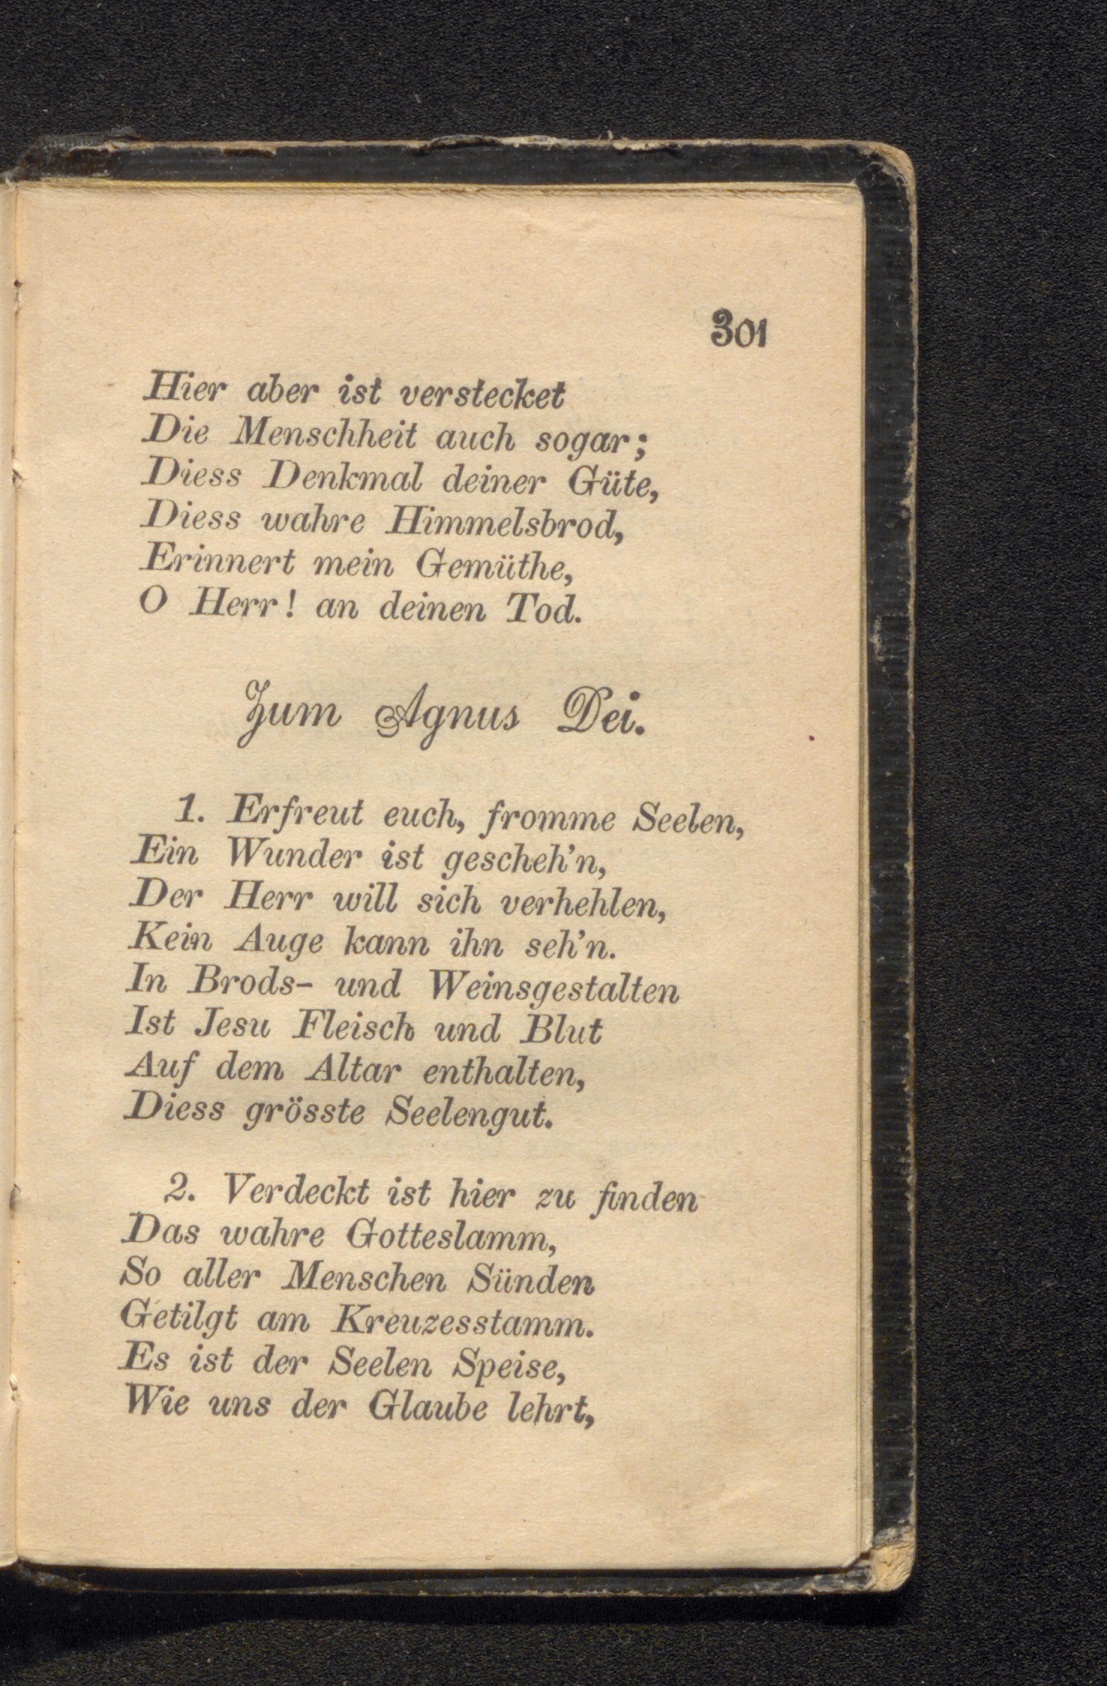 301
Hier aber ist verstecket
Die Menschheit auch sogar;
Diess Denkmal deiner Güte,
Diess wahre Himmelsbrod,
Erinnert mein Gemüthe,
O Herr! an deinen Tod.
Zum Agnus Dei.
1. Erfreut euch, fromme Seelen,
Ein Wunder ist gescheh'n,
Der Herr will sich verhehlen,
Kein Auge kann ihn seh'n.
In Brods- und Weinsgestalten
Ist Jesu Fleisch und Blut
Auf dem Altar enthalten,
Diess grösste Seelengut.
2. Verdeckt ist hier zu finden
Das wahre Gotteslamm,
So aller Menschen Sünden
Getilgt am Kreuzesstamm.
Es ist der Seelen Speise,
Wie uns der Glaube lehrt,